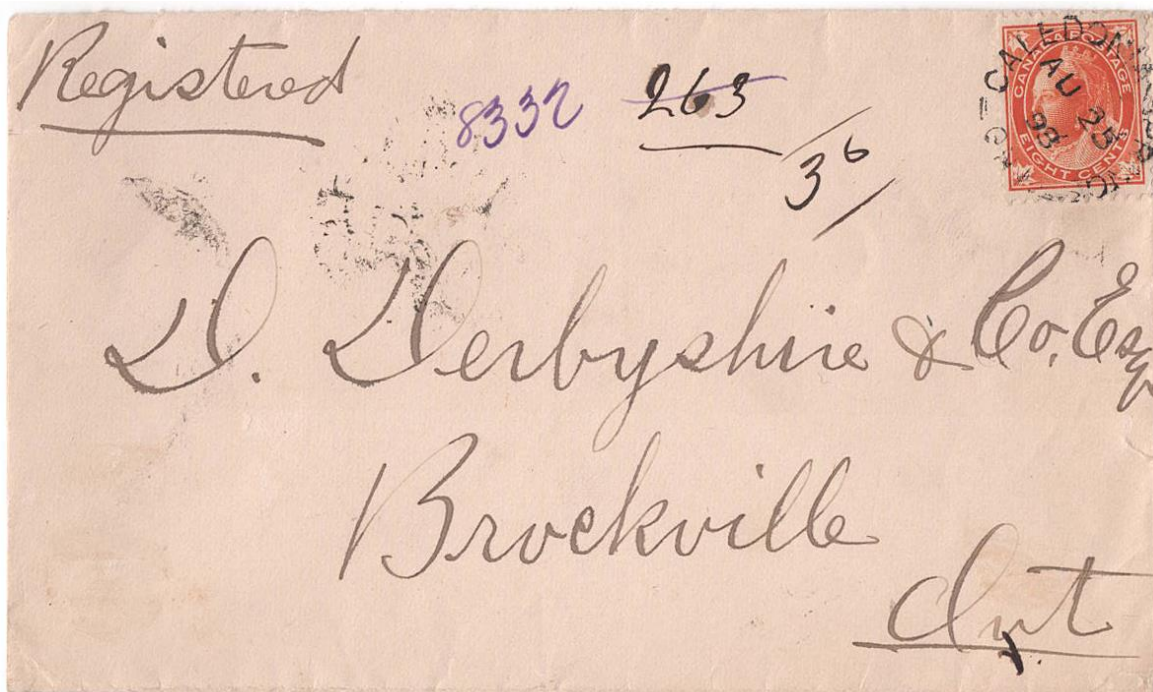 Registered
8332
263
36
CALEDONIA SPRINGS
AU 25
98
CANADA POSTAGE
EIGHT CENTS
D. Derbyshire & Co, Esq
Brockville
Ont